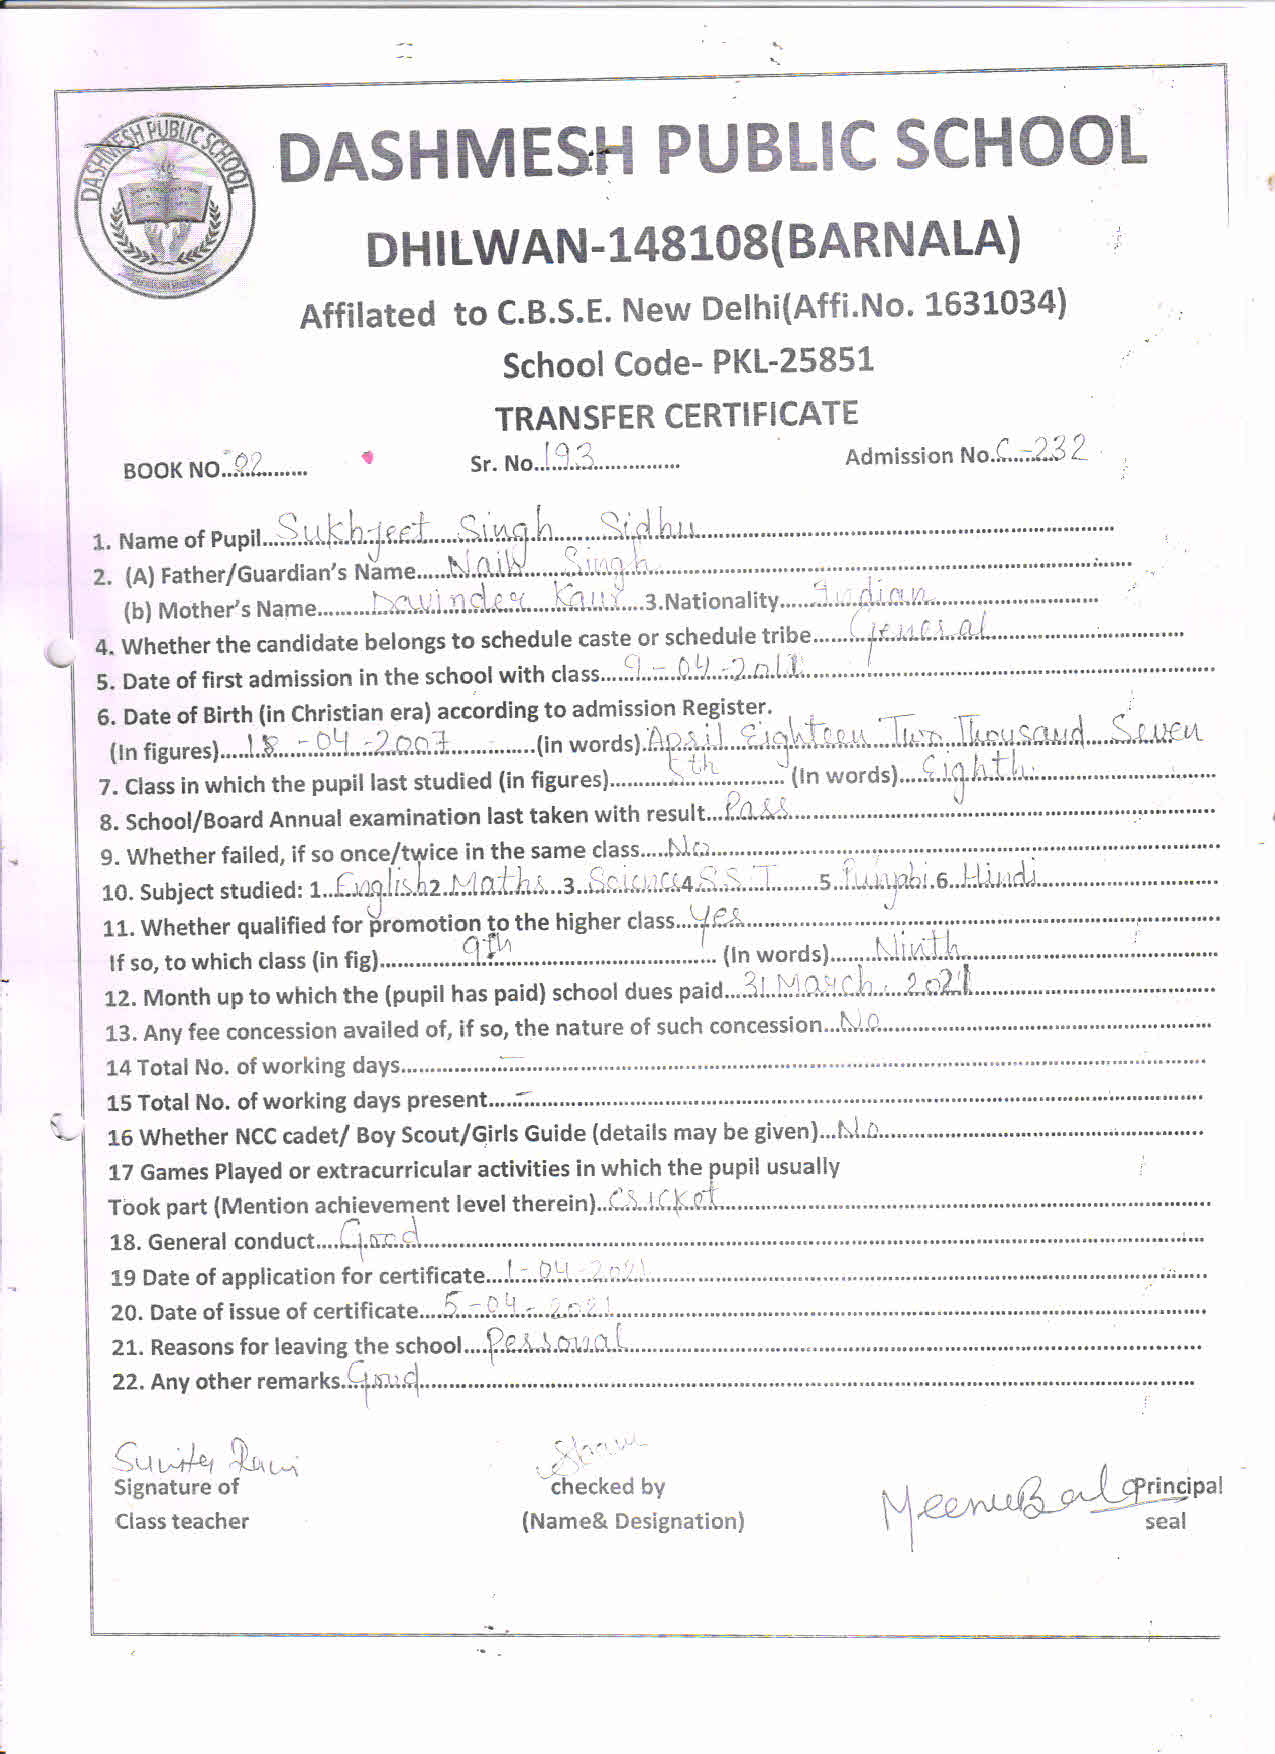 DASHMESH PUBLIC SCHOOL
DASHMESH PUBLIC SCHOOL
DHILWAN-148108(BARNALA)
Affilated to C.B.S.E. New Delhi(Affi.No. 1631034)
School Code- PKL-25851
TRANSFER CERTIFICATE
BOOK NO. 02 Sr. No. 193 Admission No. C-232
1. Name of Pupil Sukhjeet Singh Sidhu
2. (A) Father/Guardian's Name Naib Singh
(b) Mother's Name Davinder Kaur 3.Nationality Indian
4. Whether the candidate belongs to schedule caste or schedule tribe General
5. Date of first admission in the school with class 9-04-2011
6. Date of Birth (in Christian era) according to admission Register.
(In figures) 18-04-2007 (in words) April Eighteen Two Thousand Seven
7. Class in which the pupil last studied (in figures) 8th (In words) Eighth
8. School/Board Annual examination last taken with result Pass
9. Whether failed, if so once/twice in the same class No
10. Subject studied: 1. English 2. Maths 3. Science 4. S.S.T 5. Punjabi 6. Hindi
11. Whether qualified for promotion to the higher class Yes
If so, to which class (in fig) 9th (In words) Ninth
12. Month up to which the (pupil has paid) school dues paid 31 March. 2021
13. Any fee concession availed of, if so, the nature of such concession No
14 Total No. of working days -
15 Total No. of working days present -
16 Whether NCC cadet/ Boy Scout/Girls Guide (details may be given) No
17 Games Played or extracurricular activities in which the pupil usually
Took part (Mention achievement level therein) Cricket
18. General conduct Good
19 Date of application for certificate 1-04-2021
20. Date of issue of certificate 5-04-2021
21. Reasons for leaving the school Personal
22. Any other remarks Good
Sunita Rani
Signature of checked by Meenu Bala Principal
Class teacher (Name& Designation) seal